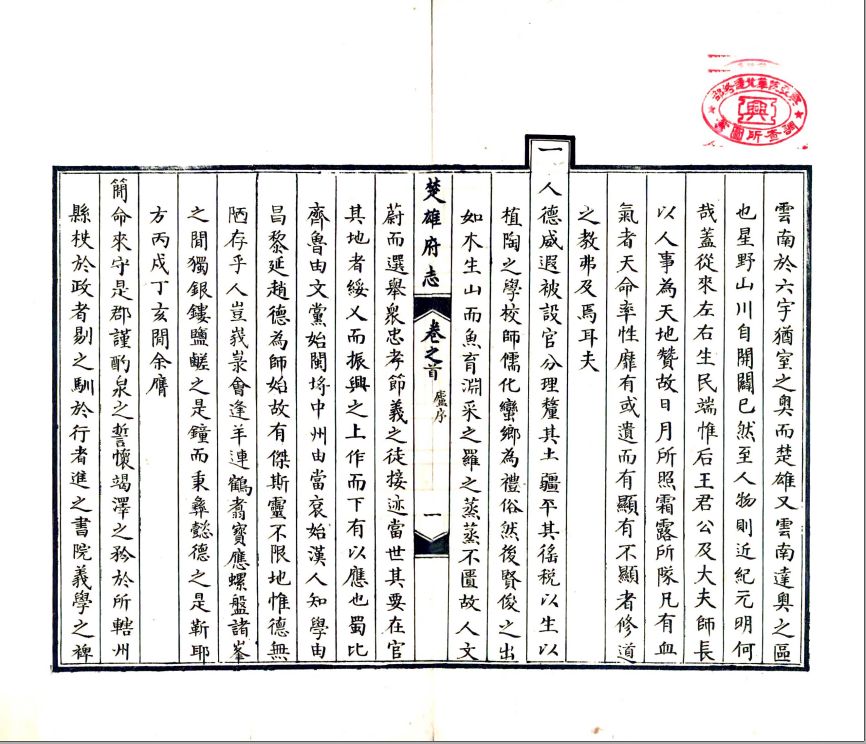 雲南於六宇猶室之奧而楚雄又雲南達奧之區
也星野山川自開闢已然至人物則近紀元明何
哉蓋從來左右生民端惟后王君公及大夫師長
以人事為天地贊故日月所照霜露所隊凡有血
氣者天命率性靡有或遺而有顯有不顯者修道
之教弗及焉耳夫
一人德威遐被設官分理釐其土疆平其徭税以生以
植陶之學校師儒化蠻鄉為禮俗然後賢俊之出
如木生山而魚育淵采之羅之蒸蒸不匱故人文
楚雄府志 卷之首 廬序 一
蔚而選舉衆忠孝節義之徒接迹當世其要在官
其地者綏乂而振興之上作而下有以應也蜀比
齊魯由文黨始閩埒中州由當衮始漢人知學由
昌黎延趙德為師始故有傑斯靈不限地惟德無
陋存乎人豈峩㟭會逢羊連鶴翥寶應螺盤諸峯
之間獨銀鏤鹽鹺之是鐘而秉彝懿德之是靳耶
方丙戌丁亥間余膺
簡命來守是郡謹酌泉之誓懷竭澤之矜於所轄州
縣杖於政者剔之馴於行者進之書院義學之裨